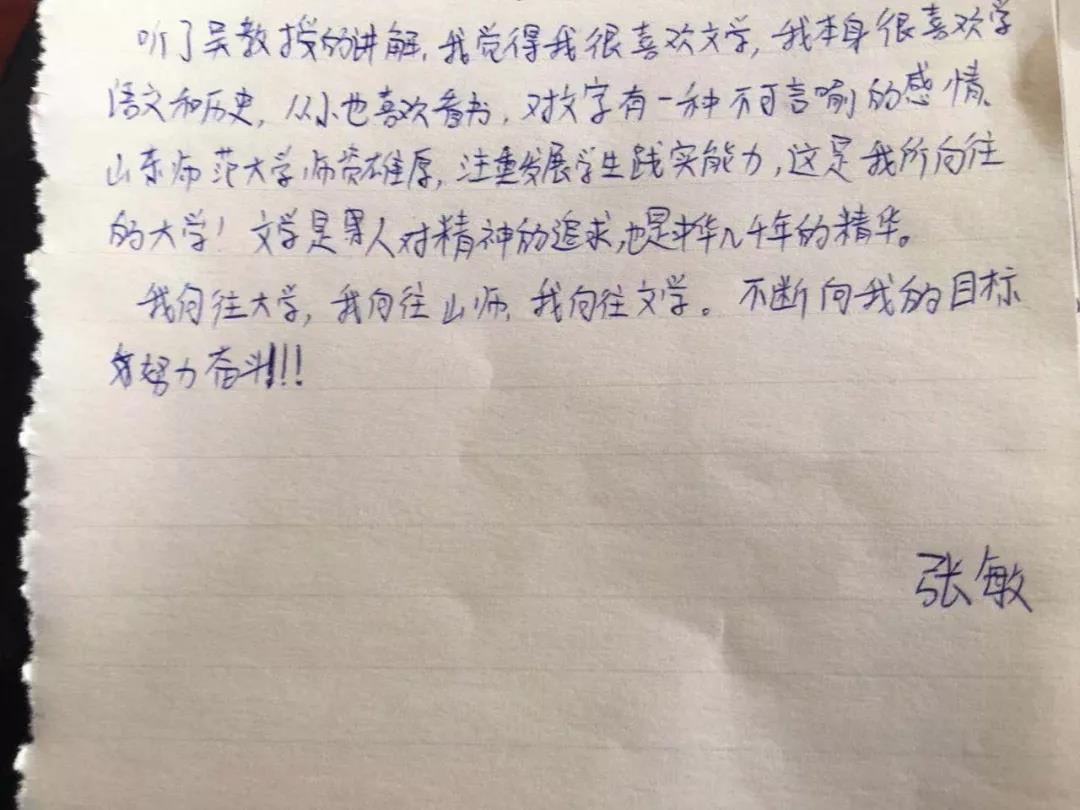 听了吴教授的讲解,我觉得我很喜欢文学,我本身很喜欢学
语文和历史,从小也喜欢看书,对文字有一种不可言喻的感情、
山东师范大学师资雄厚,注重发展学生践实能力,这是我所向往
的大学!文学是人对精神的追求,也是中华几千年的精华。
我向往大学,我向往山师,我向往文学。不断向我的目标
努力奋斗!!!
张敏